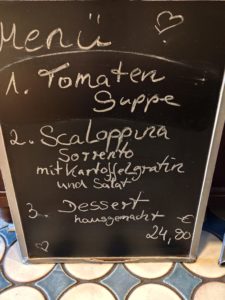 Menü
1. Tomaten
Suppe
2. Scaloppina
Sorrento
mit Kartoffelgratin
und Salat
3. Dessert
hausgemacht €
24,80